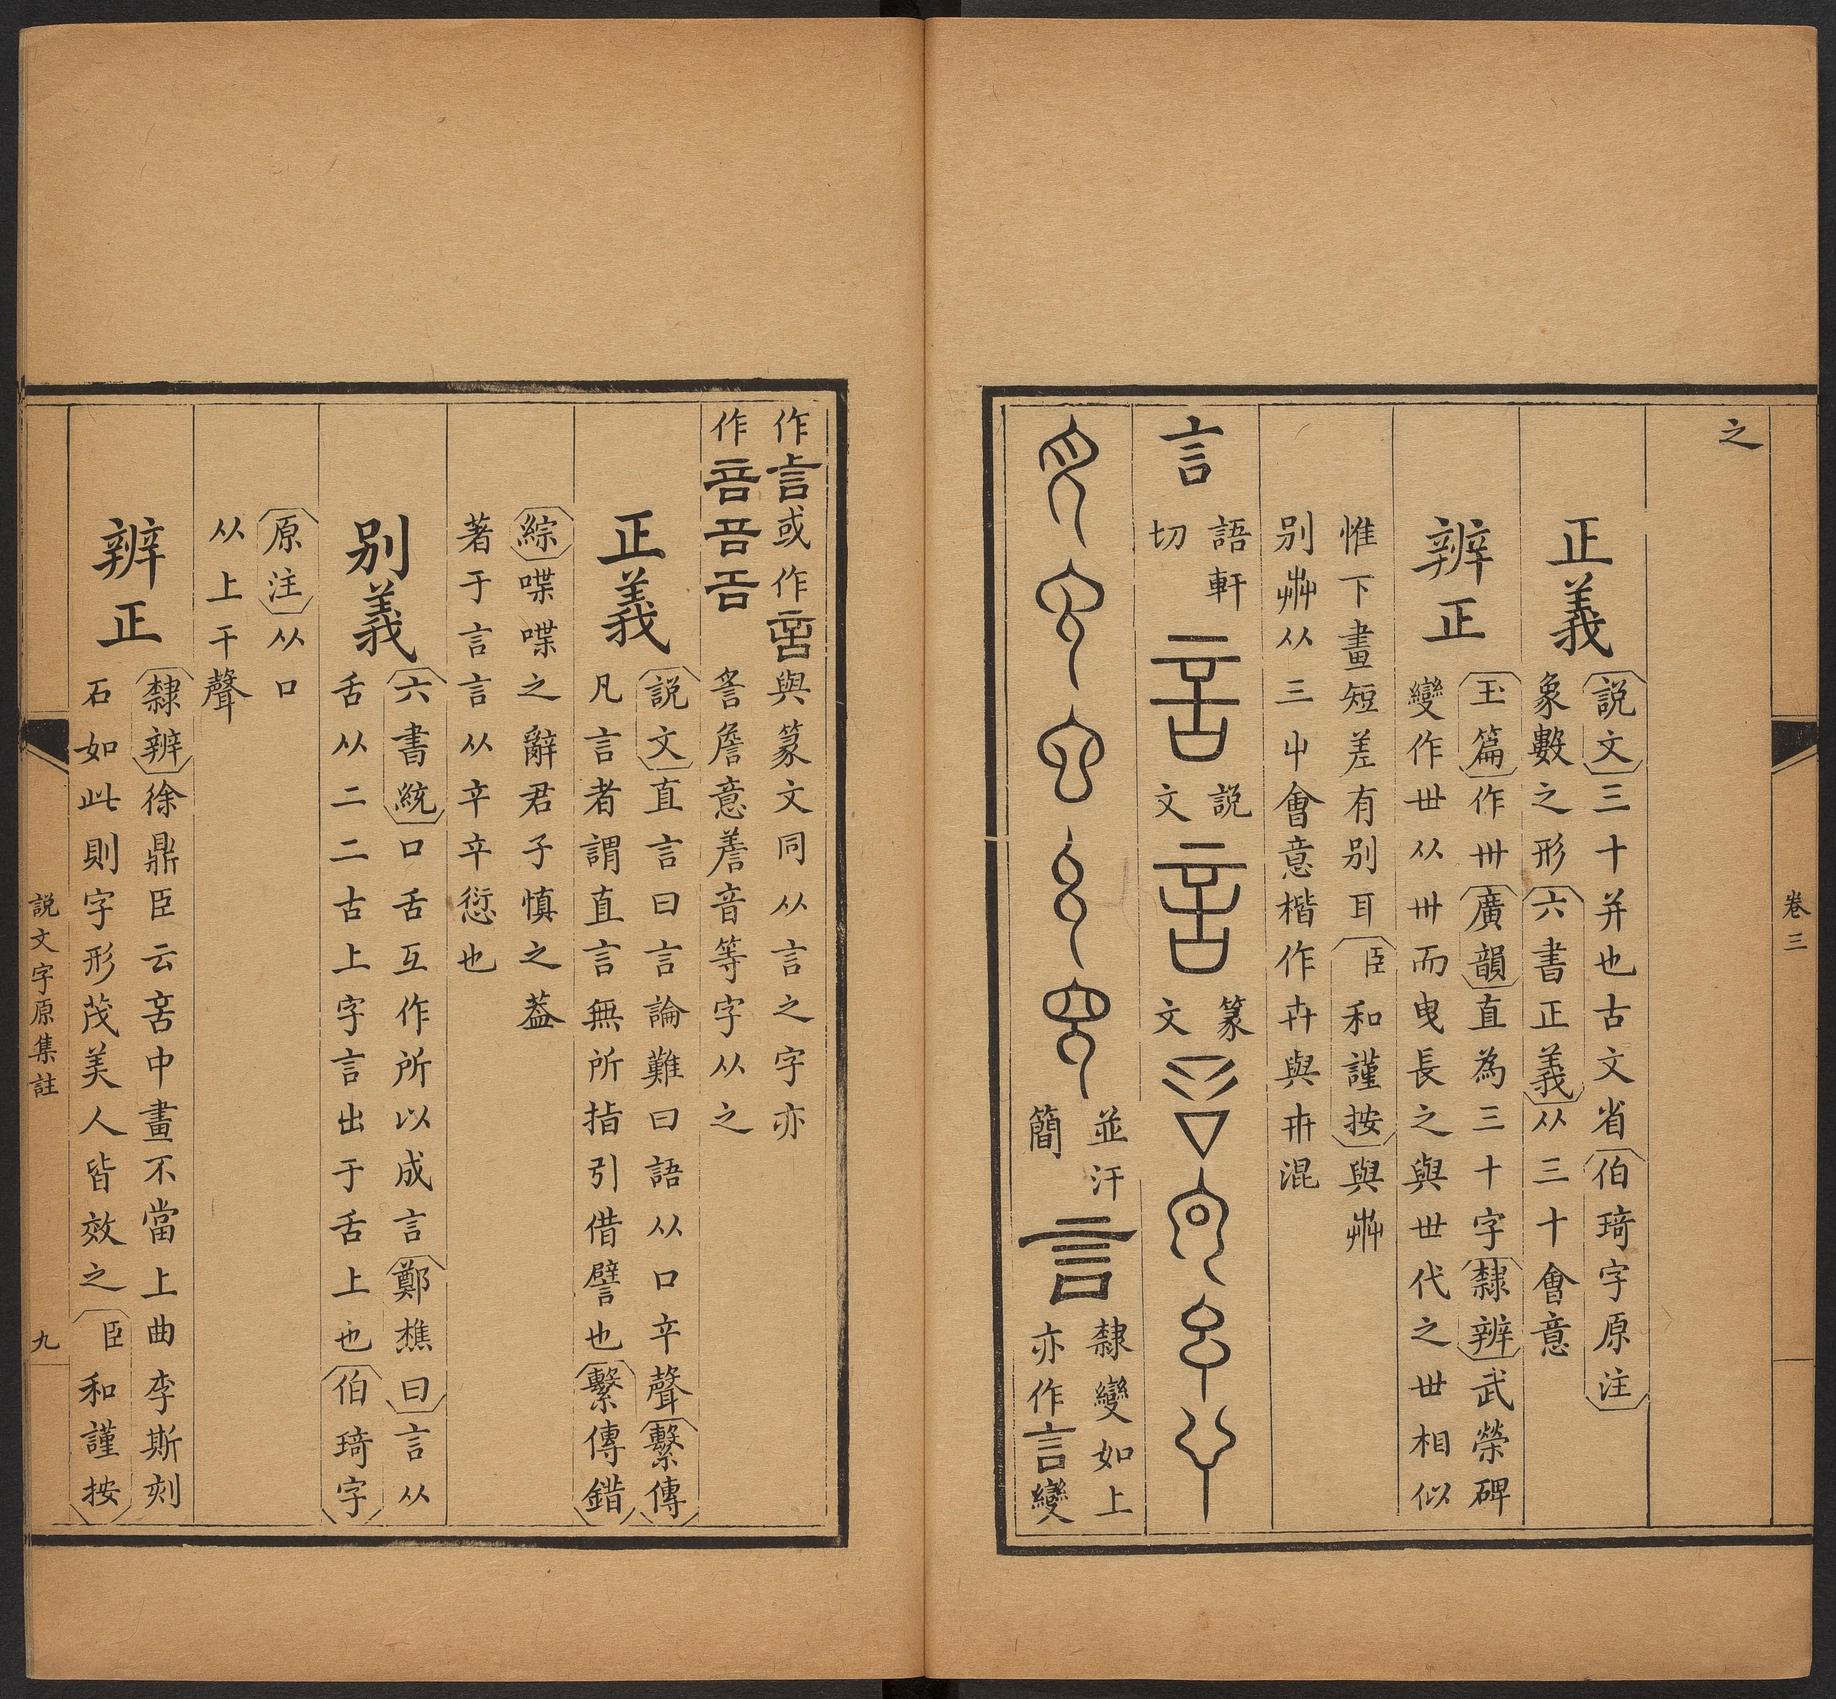 卷三
之
正義
説文三十并也古文省伯琦字原注
象數之形六書正義从三十會意
辨正
玉篇作卅廣韻直為三十字隸辨武榮碑
變作丗从卅而曳長之與丗代之丗相似
惟下畫短差有别耳臣和謹按與艸
别艸从三屮會意楷作卉與卅混
言
語軒
切
説
文
篆
文
並汗
簡
言
隸變如上
亦作言變
作言或作䇾與篆文同从言之字亦
作詹意善音等字从之
正義
説文直言曰言論難曰語从口䇂聲繫傳
凡言者謂直言無所指引借譬也繫傳錯
綜喋喋之辭君子慎之葢
著于言言从䇂䇂愆也
别義
六書統口舌互作所以成言鄭樵曰言从
舌从二二古上字言出于舌上也伯琦字
原注从口
从上干聲
辨正
隸辨徐鼎臣云䇾中畫不當上曲李斯刻
石如此則字形茂美人皆效之臣和謹按
説文字原集註
九